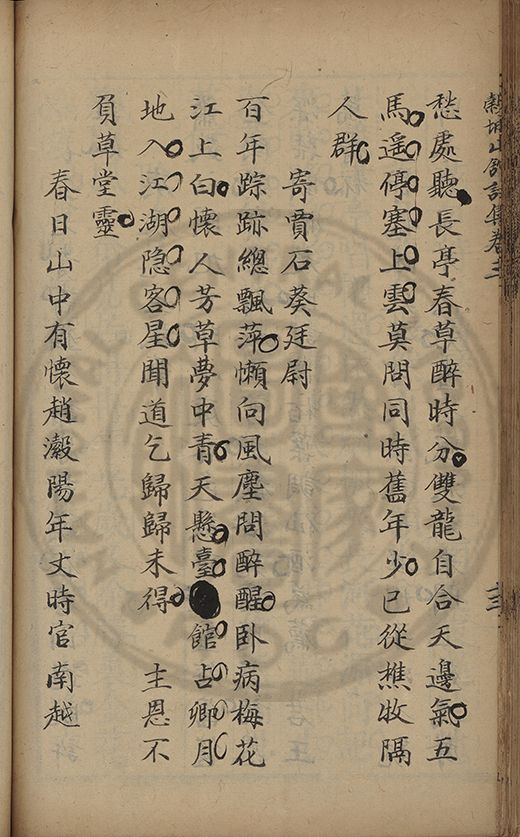 愁處聽長亭春草醉時分雙龍自合天邊氣五
馬遥停塞上雲莫問同時舊年少已從樵牧隔
人群
寄賈石葵廷尉
百年踪跡總飄萍懶向風塵問醉醒卧病梅花
江上白懷人芳草夢中青天懸臺館占卿月
地入江湖隐客星聞道乞歸歸未得 主恩不
負草堂靈
春日山中有懷趙瀫陽年丈時官南越